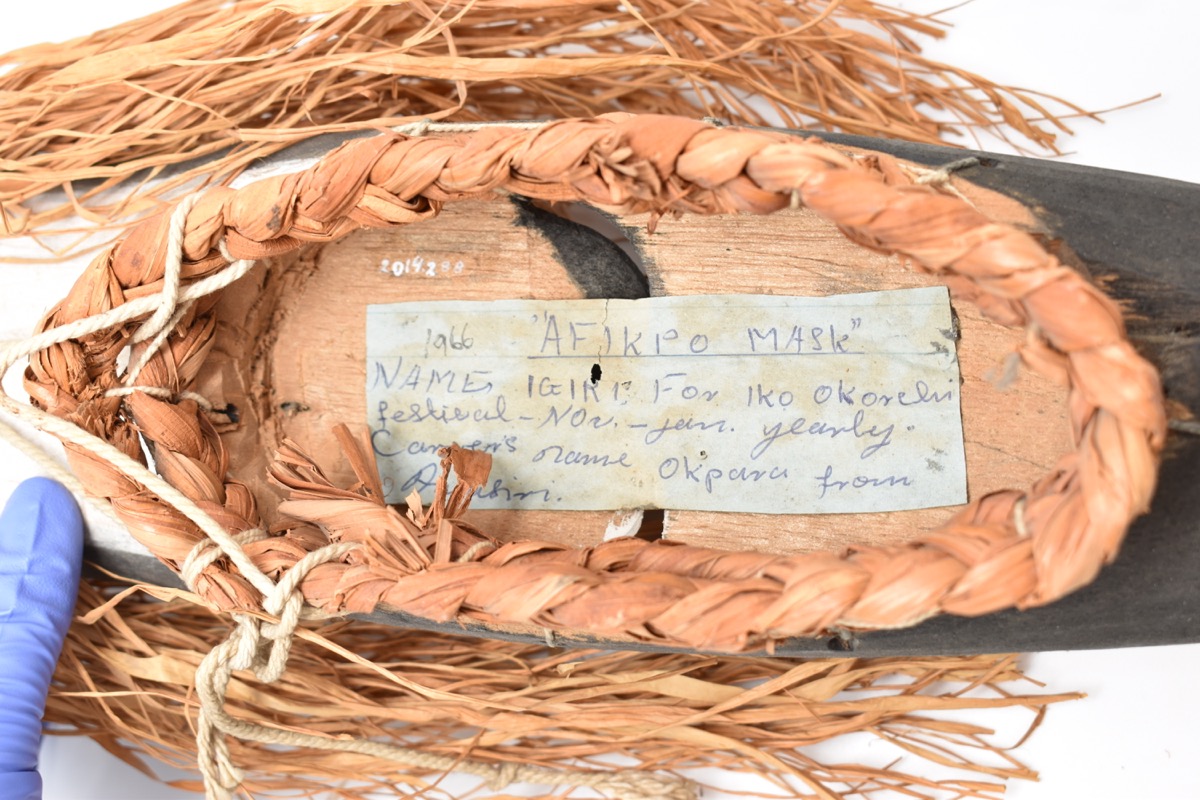 2014.2
1966 "AFIKPO MASK"
NAME, IGIRI, For Iko Okorchi
festival - Nov. - jan. yearly.
Carver's name Okpara from